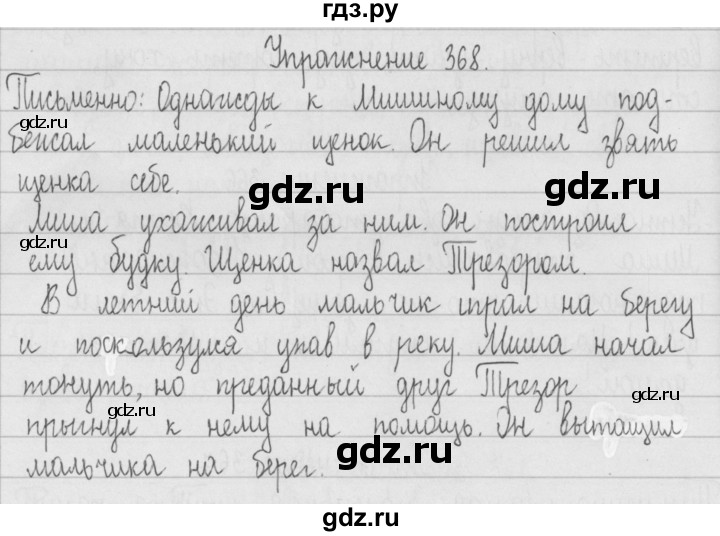 гдз.ру
Упражнение 368.
Письменно: Однажды к Мишиному дому под-
gdz.ru gdz.ru
бежал маленький щенок. Он решил взять
щенка себе.
gdz.ru gdz.ru
Миша ухаживал за ним. Он построил
gdz.ru
ему будку. Щенка назвал Трезором.
В летний день мальчик играл на берегу
gdz.ru
и поскользулся упав в реку. Миша начал
тонуть, но преданный друг Трезор
gdz.ru gdz.ru
прыгнул к нему на помощь. Он вытащил
gdz.ru
мальчика на берег.
gdz.ru
gdz.ru